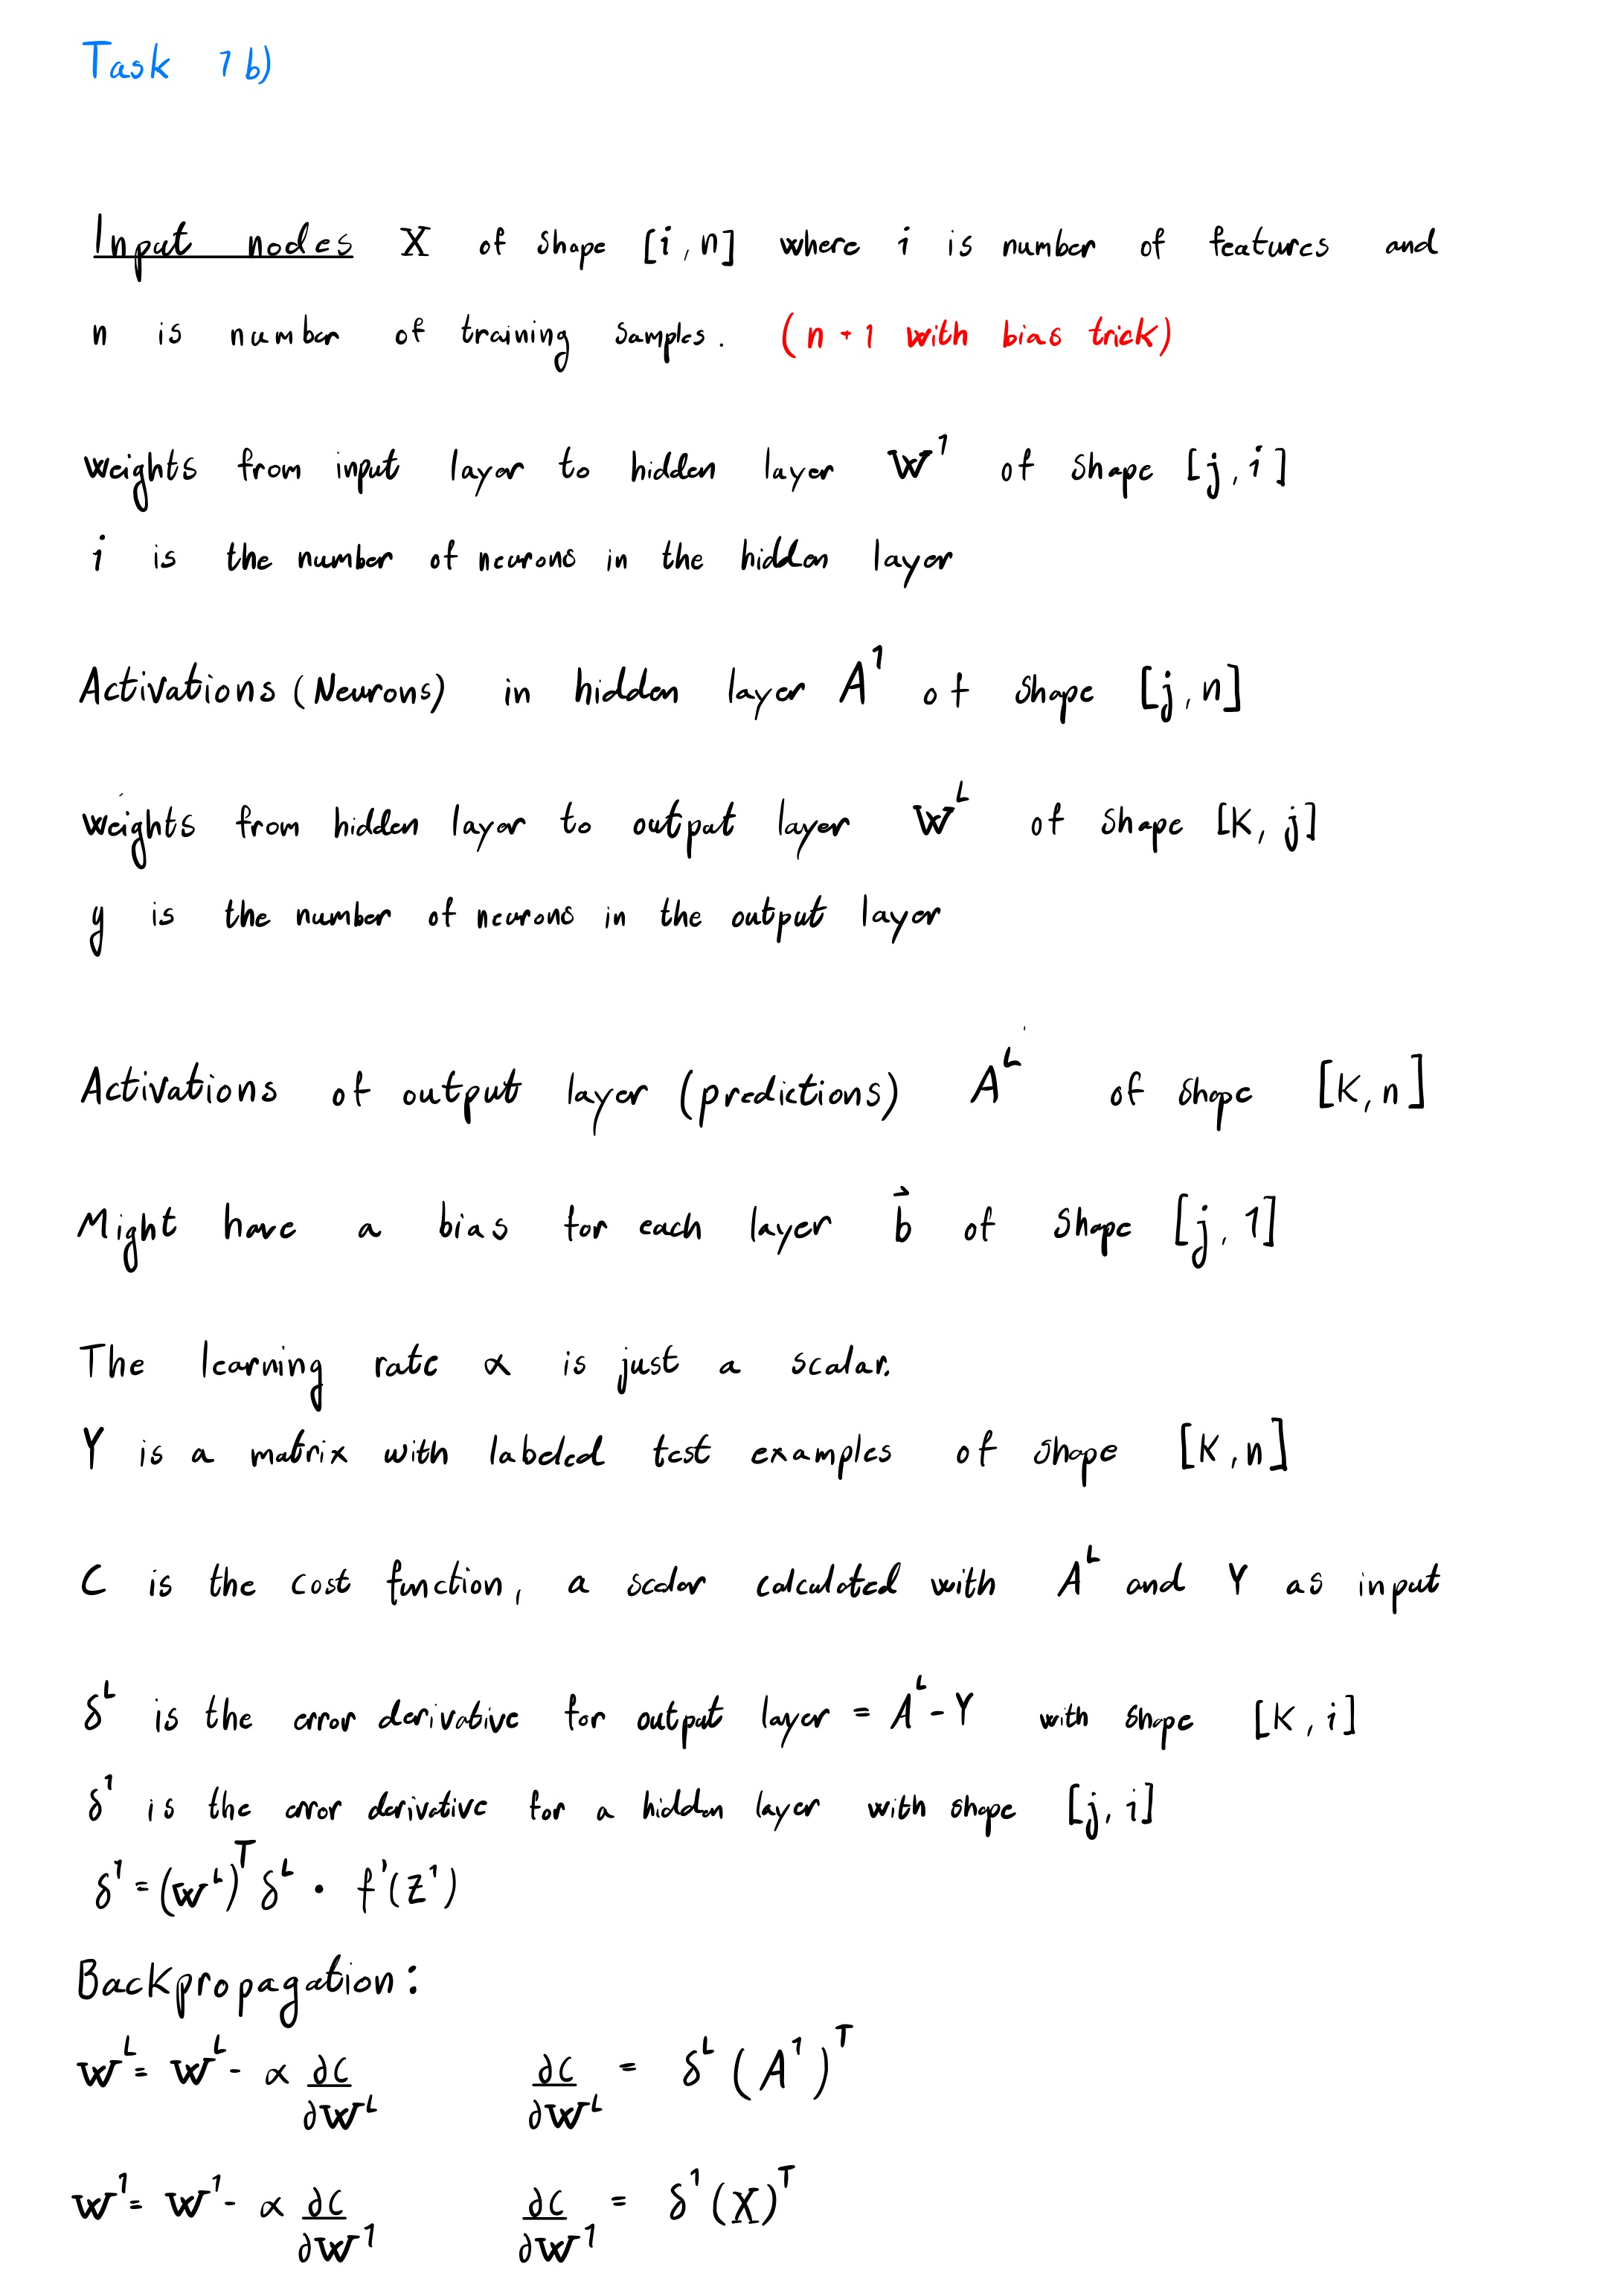 Task 1b)
Input nodes X of shape [i, n] where i is number of features and
n is number of training samples. (n + 1 with bias trick)
Weights from input layer to hidden layer W¹ of shape [j, i]
i is the number of neurons in the hidden layer
Activations (Neurons) in hidden layer A¹ of shape [j, n]
Weights from hidden layer to output layer Wᴸ of shape [K, j]
y is the number of neurons in the output layer
Activations of output layer (predictions) Aᴸ of shape [K, n]
Might have a bias for each layer b⃗ of shape [j, 1]
The learning rate α is just a scalar.
Y is a matrix with labeled test examples of shape [K, n]
C is the cost function, a scalar calculated with Aᴸ and Y as input
δᴸ is the error derivative for output layer = Aᴸ - Y with shape [K, i]
δ¹ is the error derivative for a hidden layer with shape [j, i]
δ¹ = (Wᴸ)ᵀ δᴸ • f'(z¹)
Backpropagation:
Wᴸ = Wᴸ - α ∂C/∂Wᴸ ∂C/∂Wᴸ = δᴸ (A¹)ᵀ
W¹ = W¹ - α ∂C/∂W¹ ∂C/∂W¹ = δ¹ (X)ᵀ